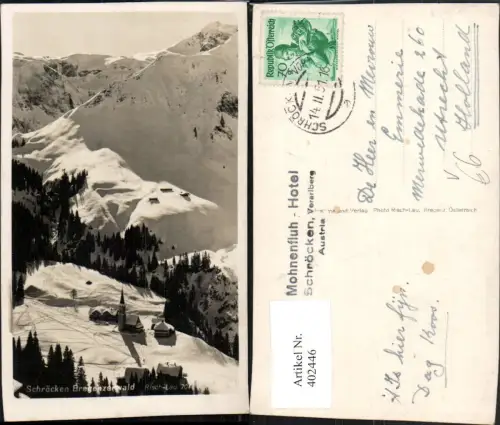 Schröcken Bregenzerwald Risch-Lau
Republik Österreich
70
SCHRÖCKEN
14.II.51.16
De Heer en Mevrouw
Emmerie
Merwedekade 260
Utrecht
Holland
66
Mohnenfluh - Hotel
Schröcken, Vorarlberg
Austria
Verlag Photo Risch-Lau, Bregenz Österreich
't Is hier fijn.
Dag Koos.
Artikel Nr.
402446